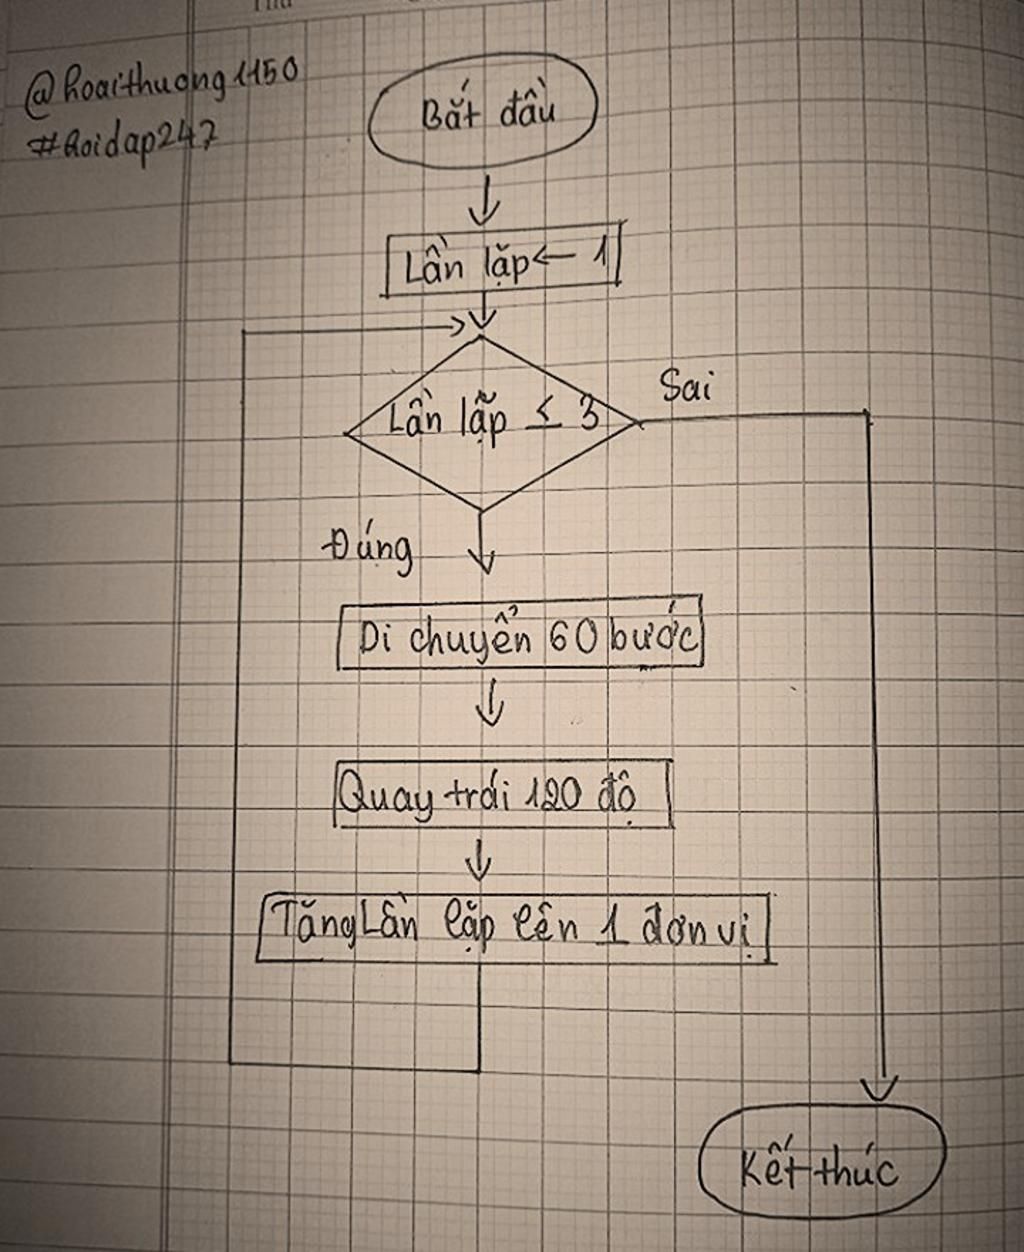 @hoaithuong1150
#hoidap247
Bắt đầu
Lần lặp ← 1
Lần lặp ≤ 3
Sai
Đúng
Di chuyển 60 bước
Quay trái 120 độ
Tăng Lần lặp lên 1 đơn vị
Kết thúc